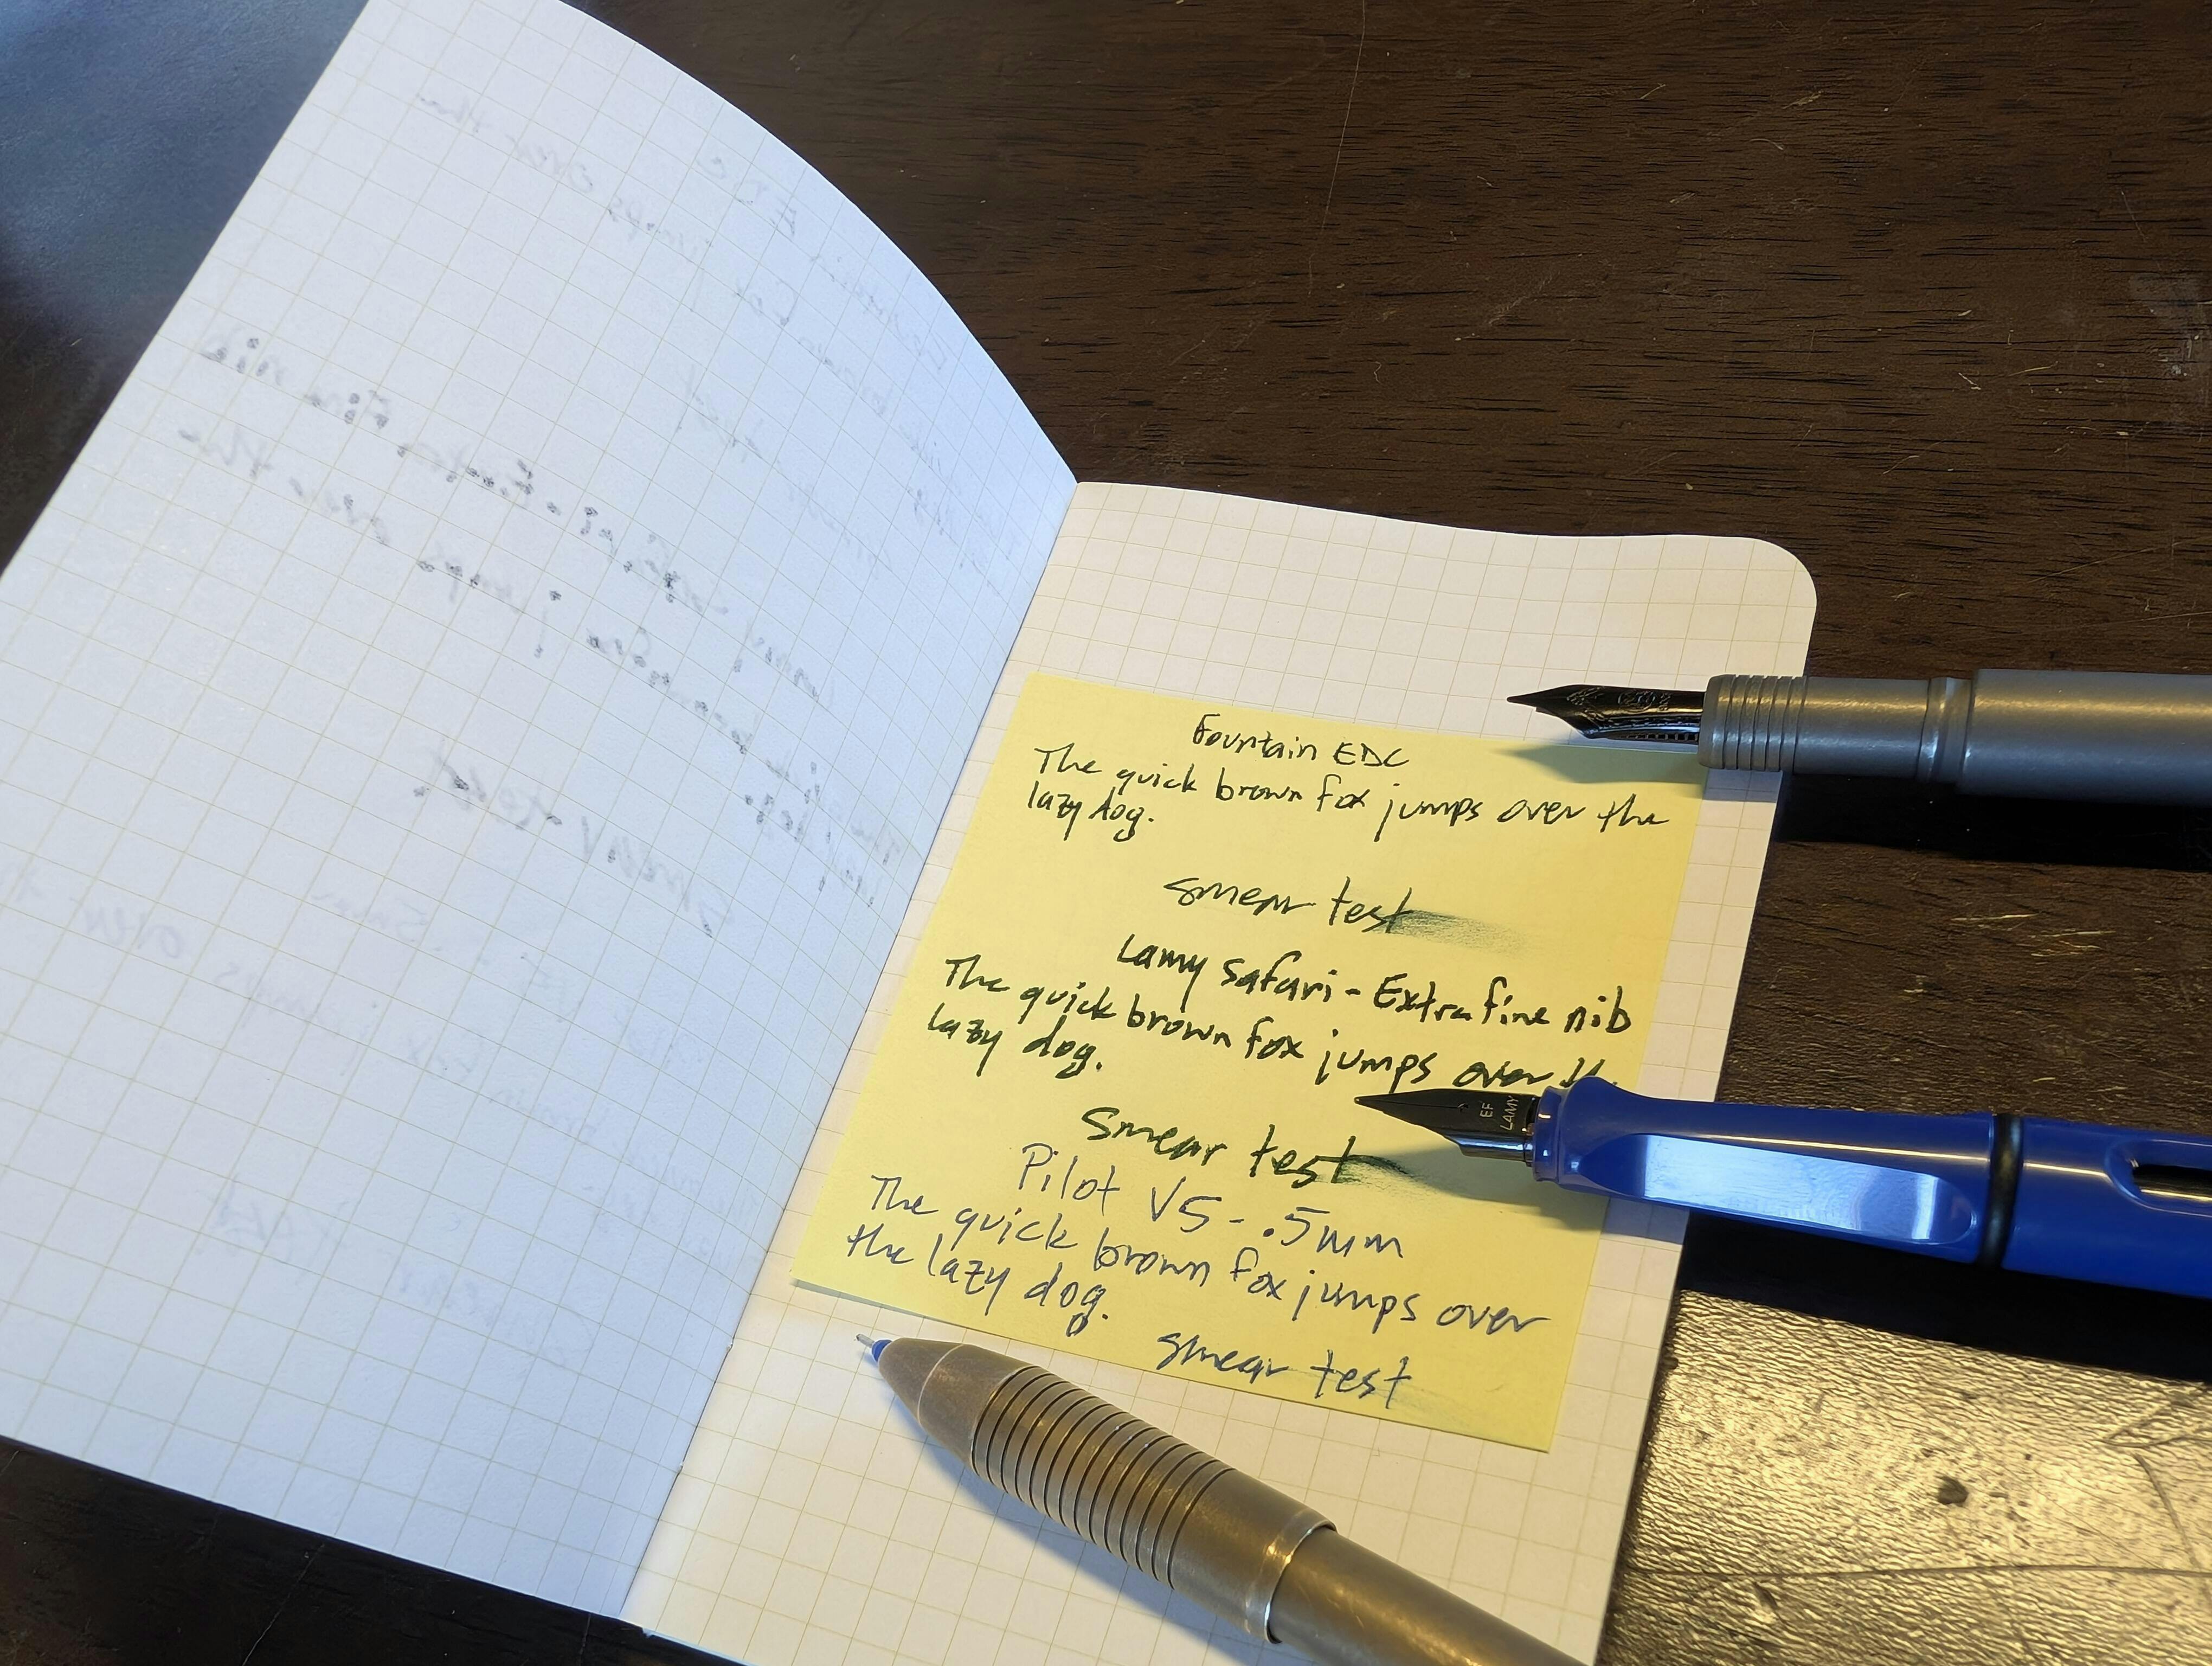 Fountain EDC
The quick brown fox jumps over the
lazy dog.
smear test
Lamy Safari - Extra fine nib
The quick brown fox jumps over
lazy dog.
Smear test
Pilot V5 - .5mm
The quick brown fox jumps over
the lazy dog.
smear test
EF
LAMY